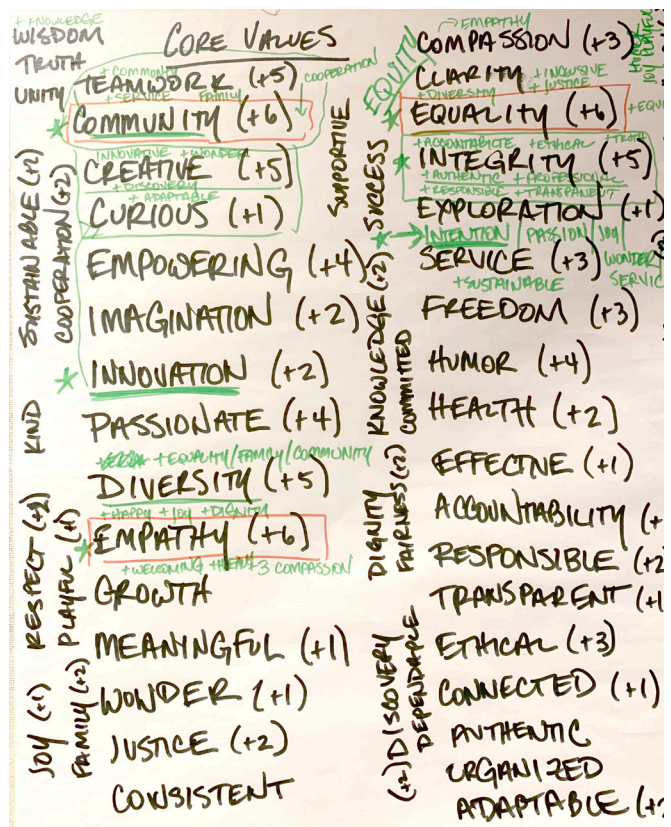 + KNOWLEDGE
WISDOM
TRUTH
UNITY
CORE VALUES
+ COMMUNITY
TEAMWORK (+5)
COOPERATION
+ SERVICE FAMILY
COMMUNITY (+6)
INNOVATIVE + WONDER
CREATIVE (+5)
+ DISCOVERY
+ ADAPTABLE
CURIOUS (+1)
EMPOWERING (+4)
IMAGINATION (+2)
INNOVATION (+2)
PASSIONATE (+4)
+ EQUALITY/FAMILY/COMMUNITY
DIVERSITY (+5)
+ HAPPY + JOY + DIGNITY
EMPATHY (+6)
+ WELCOMING
+3 COMPASSION
GROWTH
MEANINGFUL (+1)
WONDER (+1)
JUSTICE (+2)
CONSISTENT
SUSTAINABLE (+2)
COOPERATION (+2)
KIND
RESPECT (+2)
PLAYFUL (+1)
JOY (+1)
FAMILY (+2)
SUPPORTIVE
SUCCESS
KNOWLEDGE (+2)
COMMITTED
DIGNITY
FAIRNESS (+2)
(+2) DISCOVERY
DEPENDABLE
EQUITY
→ EMPATHY
COMPASSION (+3)
CLARITY
+ INCLUSIVE
+ DIVERSITY + JUSTICE
EQUALITY (+6)
+ ACCOUNTABLE + ETHICAL + TRUTH
INTEGRITY (+5)
+ AUTHENTIC + PROFESSIONAL
+ RESPONSIBLE + TRANSPARENT
EXPLORATION (+1)
→ INTENTION / PASSION / JOY /
SERVICE (+3)
WONDER
SERVIC
+ SUSTAINABLE
FREEDOM (+3)
HUMOR (+4)
HEALTH (+2)
EFFECTIVE (+1)
ACCOUNTABILITY (+
RESPONSIBLE (+2
TRANSPARENT (+1
ETHICAL (+3)
CONNECTED (+1)
AUTHENTIC
ORGANIZED
ADAPTABLE (+2
JOY PLAYFUL